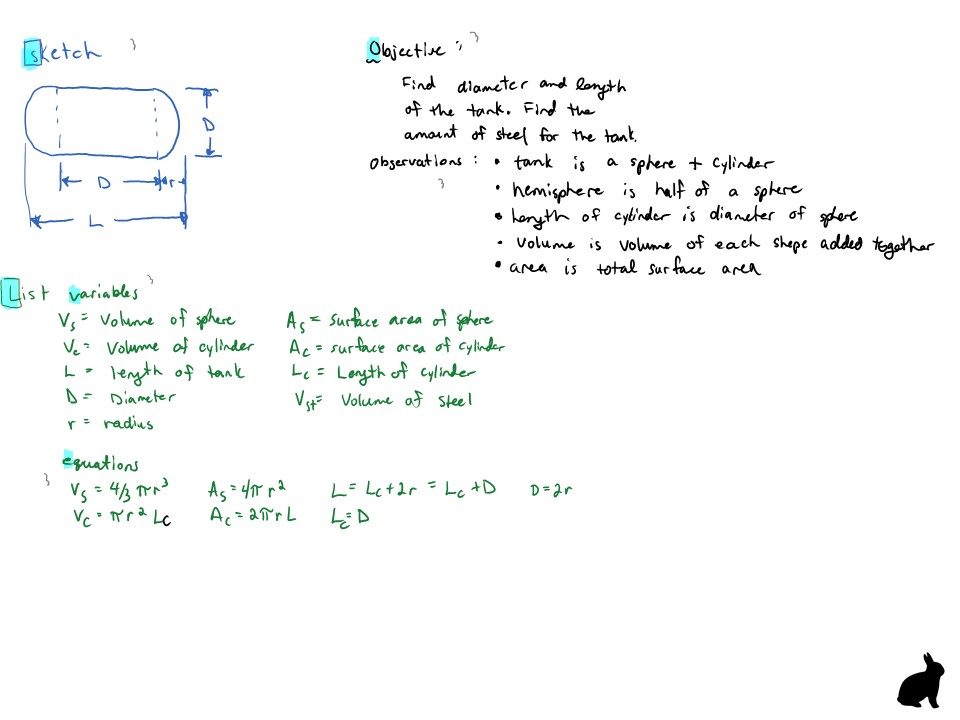 Sketch
D
D
r
L
Objective:
Find diameter and length
of the tank. Find the
amount of steel for the tank.
Observations: • tank is a sphere + cylinder
• hemisphere is half of a sphere
• Length of cylinder is diameter of sphere
• Volume is volume of each shape added together
• area is total surface area
List variables
Vs = Volume of sphere
Vc = Volume of cylinder
L = length of tank
D = Diameter
r = radius
As = surface area of sphere
Ac = surface area of cylinder
Lc = Length of cylinder
Vst = Volume of steel
equations
Vs = 4/3 πr³ As = 4π r² L = Lc + 2r = Lc + D D = 2r
Vc = πr² Lc Ac = 2πrL Lc = D